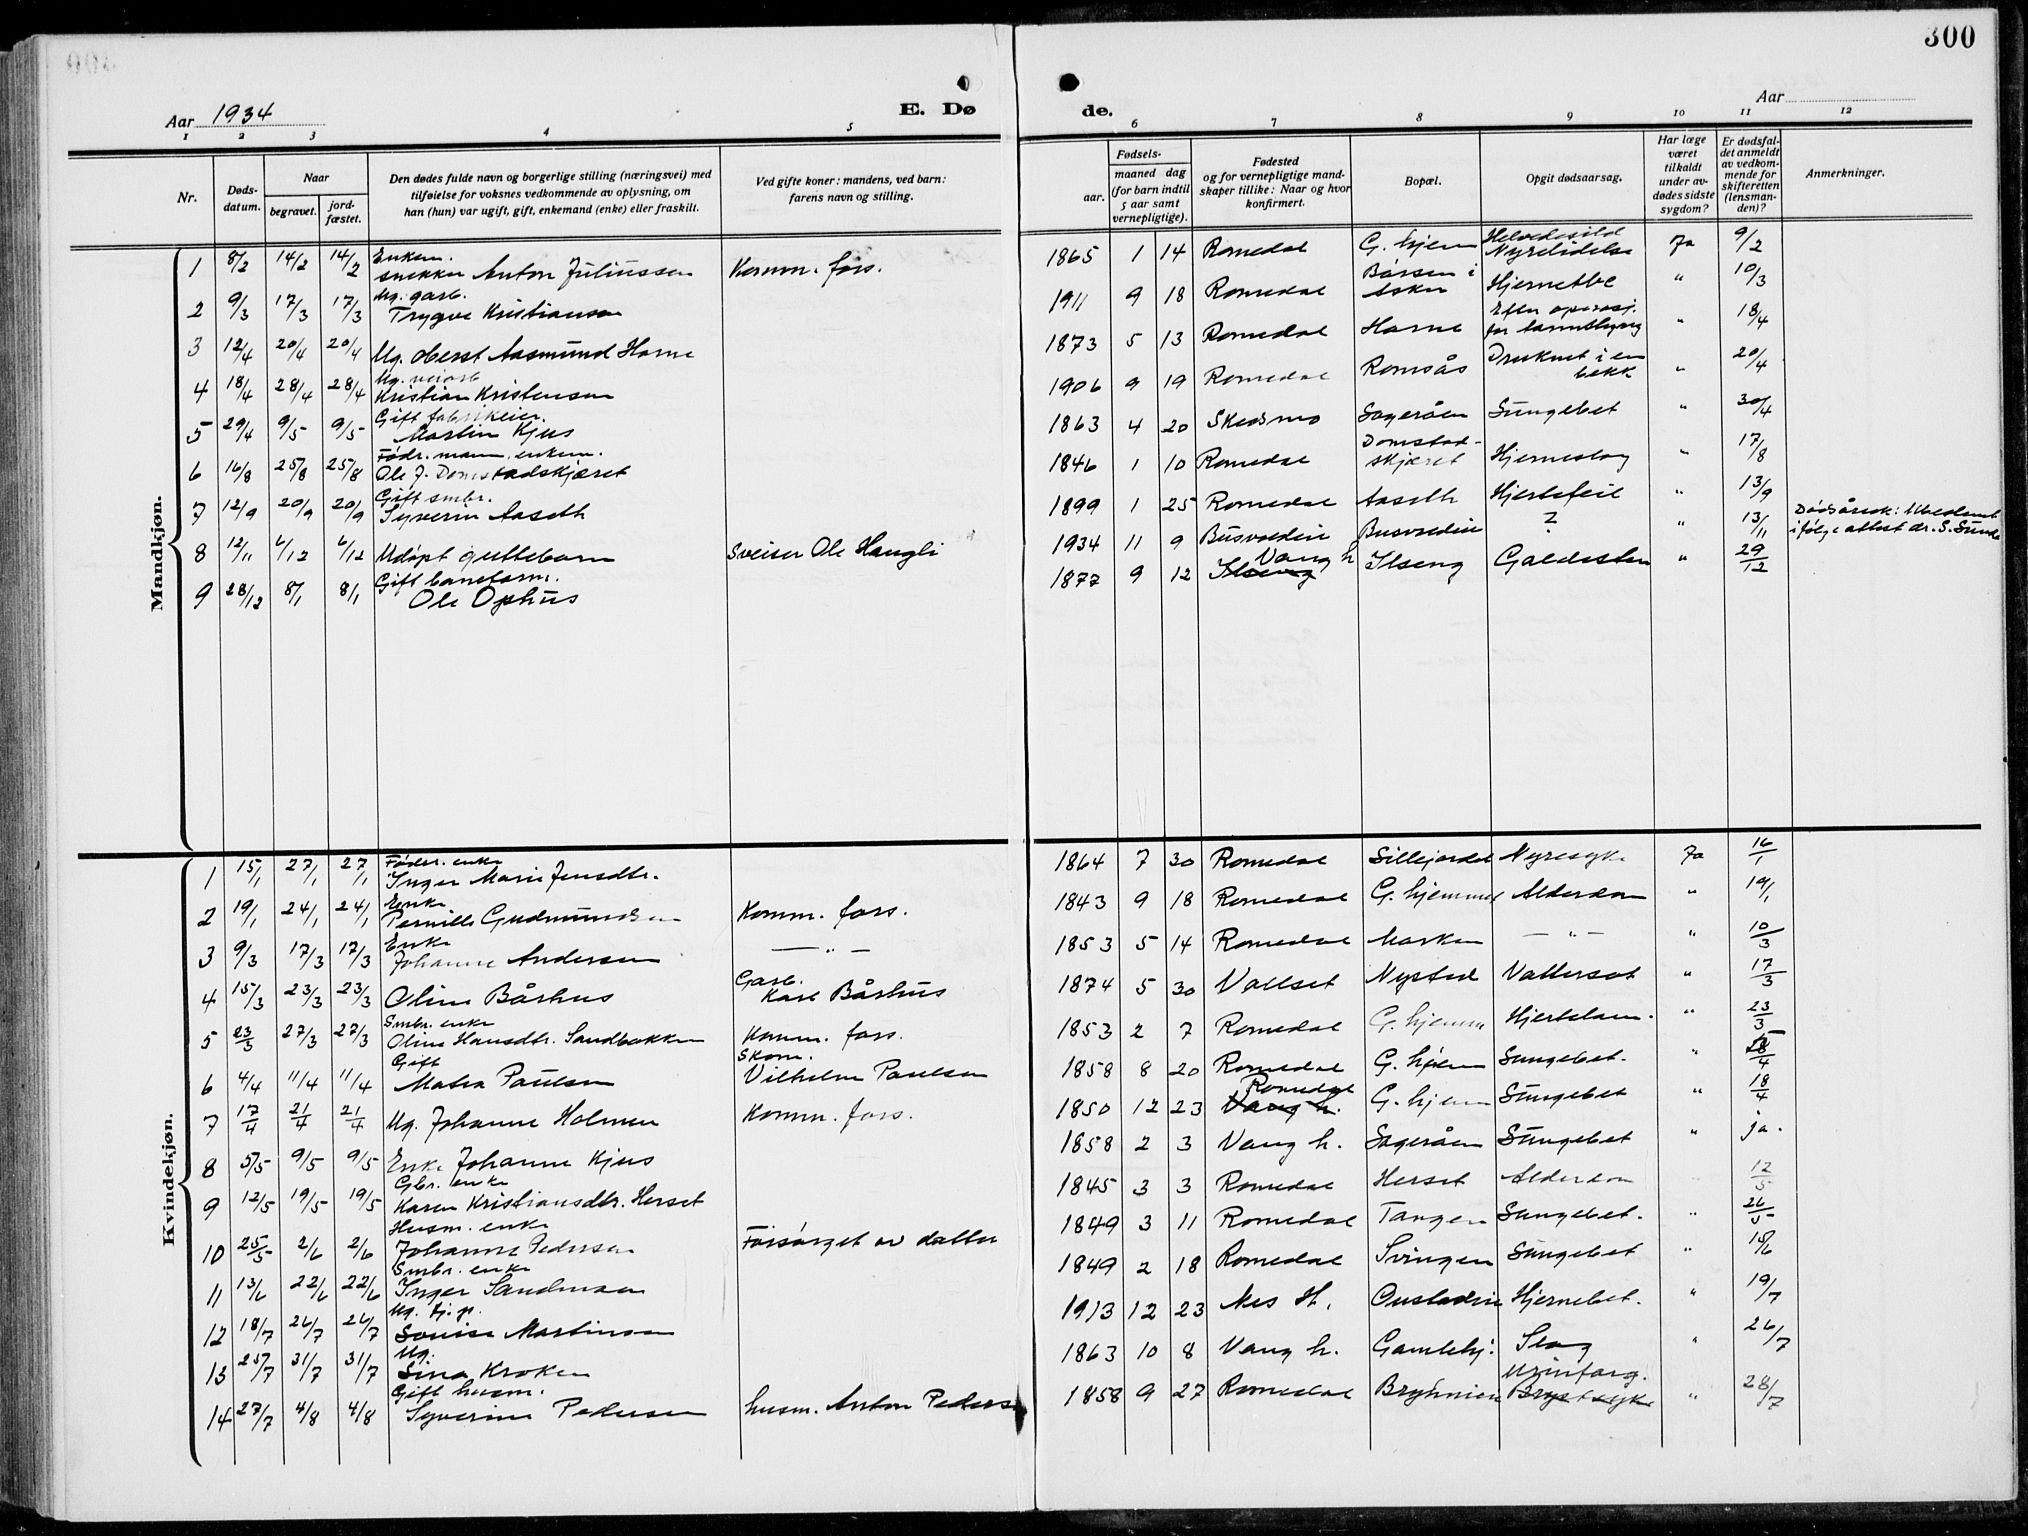 300
Aar 1934
E. Dø
de.
Aar
1 2 3 4 5
6 7 8 9 10 11 12
Nr.
Døds-
datum.
Naar
begravet.
jord-
fæstet.
Den dødes fulde navn og borgerlige stilling (næringsvei) med
tilføielse for voksnes vedkommende av oplysning, om
han (hun) var ugift, gift, enkemand (enke) eller fraskilt.
Ved gifte koner: mandens, ved barn:
farens navn og stilling.
aar.
Fødsels-
maaned dag
(for barn indtil
5 aar samt
vernepligtige).
Fødested
og for vernepligtige mand-
skaper tillike: Naar og hvor
konfirmert.
Bopæl.
Opgit dødsaarsag.
Har læge
været
tilkaldt
under av-
dødes sidste
sygdom?
Er dødsfal-
det anmeldt
av vedkom-
mende for
skifteretten
(lensman-
den)?
Anmerkninger.
Mandkjøn.
1 8/2 14/2 14/2 Enkem. snekker Anton Juliussen Komm. fors. 1865 1 14 Romedal G. hjem Helvedesild Nyrelidelse Ja 9/2
2 9/3 17/3 17/3 Ug. garb. Trygve Kristiansen 1911 9 18 Romedal Børsen i Asker Hjernetbc " 10/3
3 12/4 20/4 20/4 Ug. oberst Aasmund Horne 1873 5 13 Romedal Horne Efter operasj. for " 18/4
4 18/4 28/4 28/4 Ug. veiarb Kristian Kristensen 1906 9 19 Romedal Romsås Druknet i en bekk " 20/4
5 29/4 9/5 9/5 Gift fabrikeier. Martin Kjus 1863 4 20 Skedsmo Sageråen Lungebet " 30/4
6 16/8 25/8 25/8 Fødr. mann, enkem. Ole J. Domstadskjæret 1846 1 10 Romedal Domstad-skjæret Hjerneslag " 17/8
7 12/9 20/9 20/9 Gift smbr. Syverin Aaseth 1899 1 25 Romedal Aaseth Hjertefeil " 13/9
8 12/11 6/12 6/12 Udøpt guttebarn Sveiser Ole Haugli 1934 11 9 Busvoldeie Busvoldeie ? " 13/11 Dødsårsak: Ubestemt ifølge attest dr. S. Sunde
9 28/12 8/1 8/1 Gift baneform. Ole Ophus 1877 9 12 Ilseng Vang h Ilseng Galdesten " 29/12
Kvindekjøn.
1 15/1 27/1 27/1 Føder. enke Inger Marie Jensdtr. 1864 7 30 Romedal Sillejordet Nyresyke Ja 16/1
2 19/1 24/1 24/1 Enke Pernille Gudmundsen Komm. fors. 1843 9 18 Romedal G. hjemmet Alderdom " 19/1
3 9/3 17/3 17/3 Enke Johanne Andersen — " — 1853 5 14 Romedal Marken — " — " 10/3
4 15/3 23/3 23/3 Oline Bårhus Garb. Karl Bårhus 1874 5 30 Vallset Nysted Vattersot " 17/3
5 23/3 27/3 27/3 Smbr. enke Oline Hansdtr. Sandbakken Komm. fors. 1853 2 7 Romedal G. hjemm Hjertelam. " 23/3
6 4/4 11/4 11/4 Gift Matea Paulsen Skom. Vilhelm Paulsen 1858 8 20 Romedal G. hjem Lungebet. " /4
7 17/4 21/4 21/4 Ug. Johanne Holmen Komm. fors. 1850 12 23 Vang h. Romedal G. hjem Lungebet " 18/4
8 5/5 9/5 9/5 Enke Johanne Kjus 1858 2 3 Vang h. Sageråen Lungebet " ja.
9 12/5 19/5 19/5 Gbr. enke Karen Kristiansdtr. Herset 1845 3 3 Romedal Herset Alderdom " 12/5
10 25/5 2/6 2/6 Husm. enke Johanne Pedersen Forsørget av datter 1849 3 11 Romedal Tangen Lungebet. " 26/5
11 13/6 22/6 22/6 Smbr. enke Inger Sandmoen 1849 2 18 Romedal Svingen Lungebet " 15/6
12 18/7 26/7 26/7 Ug. tj.p. Lovise Martinsen 1913 12 23 Nes H. Oustadeie Hjernebet. " 19/7
13 25/7 31/7 31/7 Ug. Lina Kroken 1863 10 8 Vang h. Gamlehj: Slag " 26/7
14 27/7 4/8 4/8 Gift husm. Syverine Pedersen husm. Anton Peders 1858 9 27 Romedal Bryhnieie Brystsyke Urinforg. " 28/7